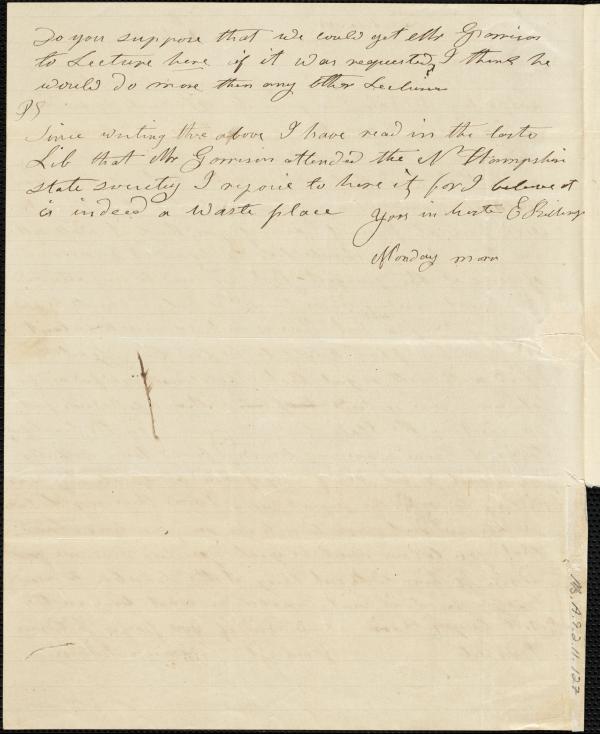 Do you suppose that we could get Mr Garrison
to Lecture here if it was requested, I think he
would do more then any other Lecturer
PS
Since writing the above I have read in the last
Lib that Mr Garrison attended the N Hampshire
state society I rejoice to here it, for I believe it
is indeed a waste place Yors in haste E
Monday morn
Ms. A.9.2.11.127